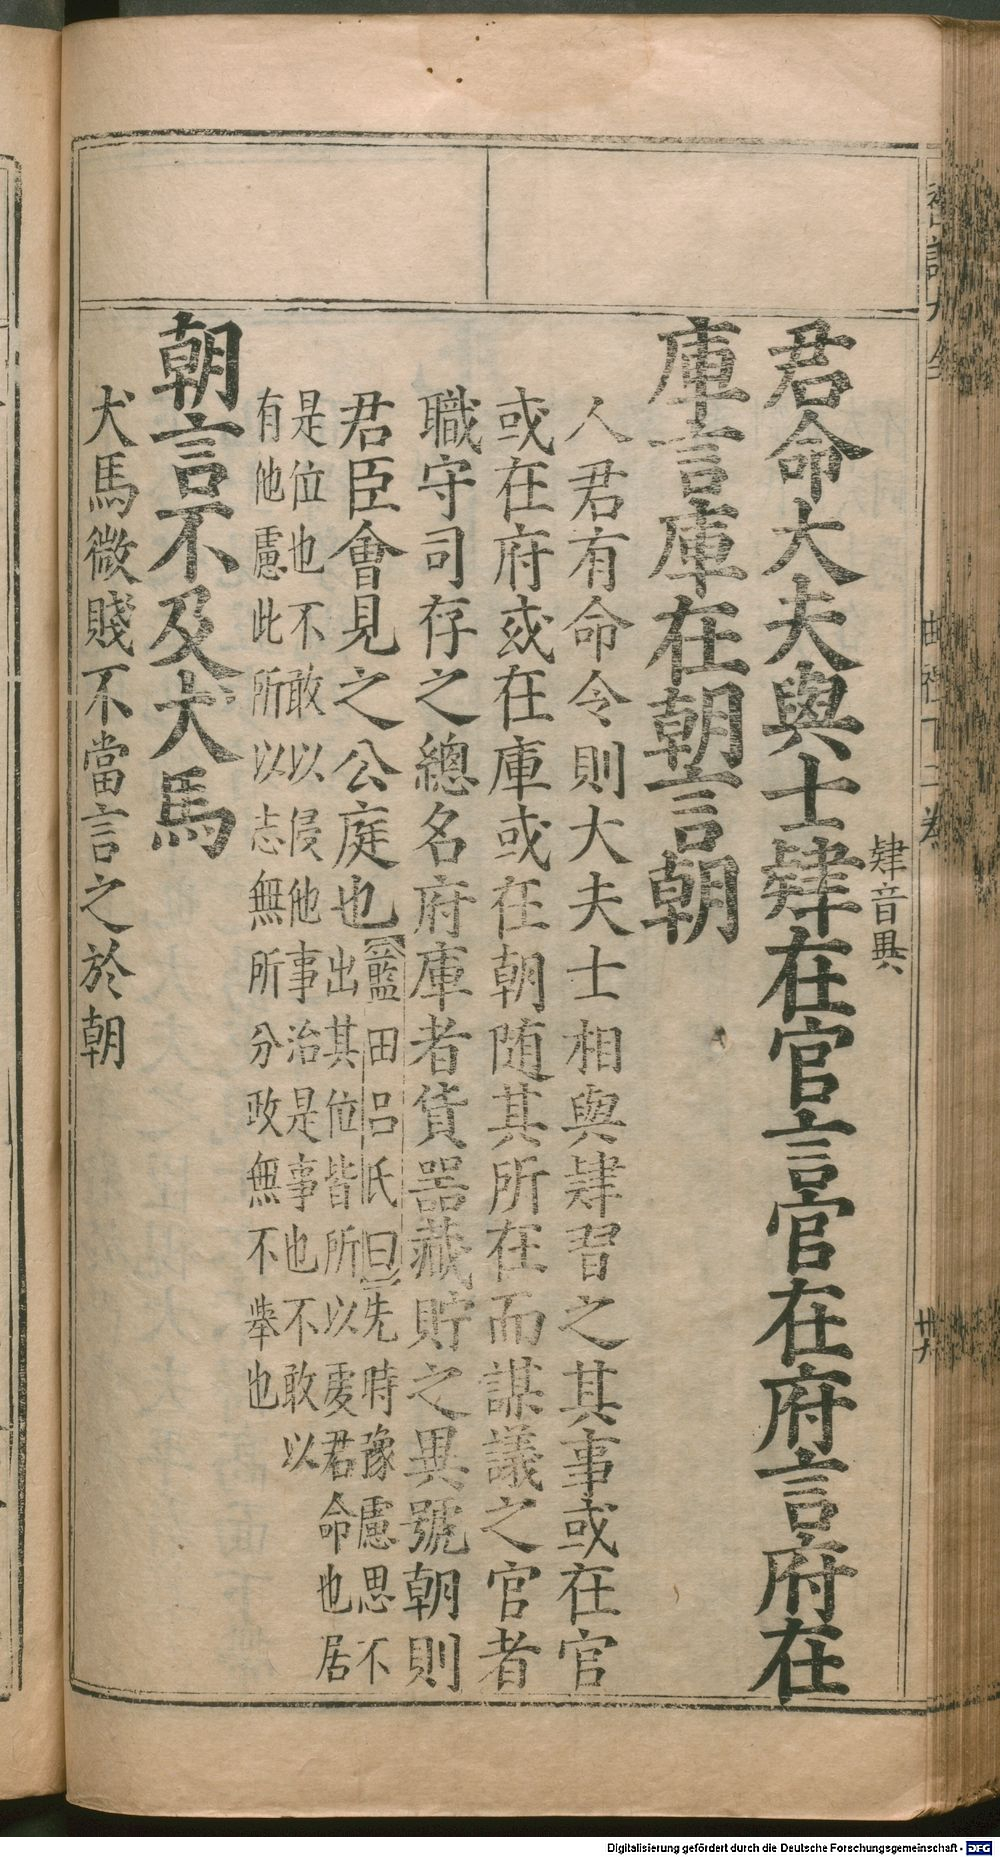 肄音異
君命大夫與士肄在官言官在府言府在
庫言庫在朝言朝
人君有命令則大夫士相與肄習之其事或在官
或在府或在庫或在朝随其所在而謀議之官者
職守司存之總名府庫者貨器藏貯之異號朝則
君臣會見之公庭也藍田呂氏曰先時豫慮思不
出其位皆所以處君命也居
是位也不敢以侵他事治是事也不敢以
有他慮此所以志無所分政無不舉也
朝言不及犬馬
犬馬微賤不當言之於朝
曲禮下二卷
卅六
Digitalisierung gefördert durch die Deutsche Forschungsgemeinschaft - DFG